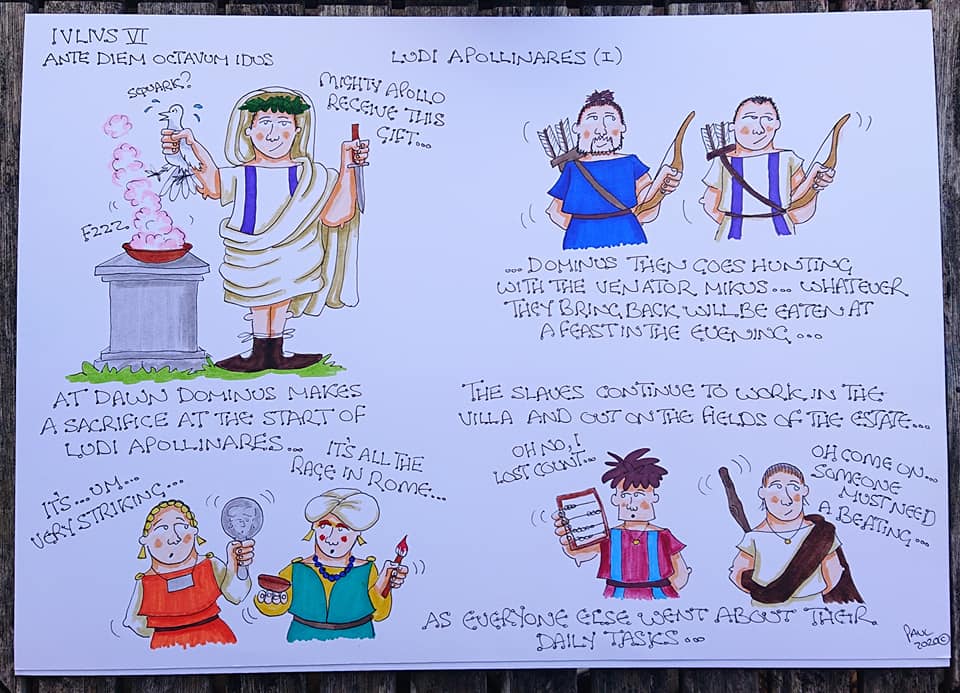 IVLIVS VI
ANTE DIEM OCTAVUM IDUS
LUDI APOLLINARES (I)
SQUARK?
MIGHTY APOLLO
RECEIVE THIS
GIFT...
FZZZ.
AT DAWN DOMINUS MAKES
A SACRIFICE AT THE START OF
LUDI APOLLINARES...
... DOMINUS THEN GOES HUNTING
WITH THE VENATOR MIKUS... WHATEVER
THEY BRING BACK WILL BE EATEN AT
A FEAST IN THE EVENING...
THE SLAVES CONTINUE TO WORK IN THE
VILLA AND OUT ON THE FIELDS OF THE ESTATE...
IT'S... UM...
VERY STRIKING...
IT'S ALL THE
RAGE IN ROME...
OH NO, I
LOST COUNT...
OH COME ON...
SOMEONE
MUST NEED
A BEATING...
AS EVERYONE ELSE WENT ABOUT THEIR
DAILY TASKS...
PAUL
2020©